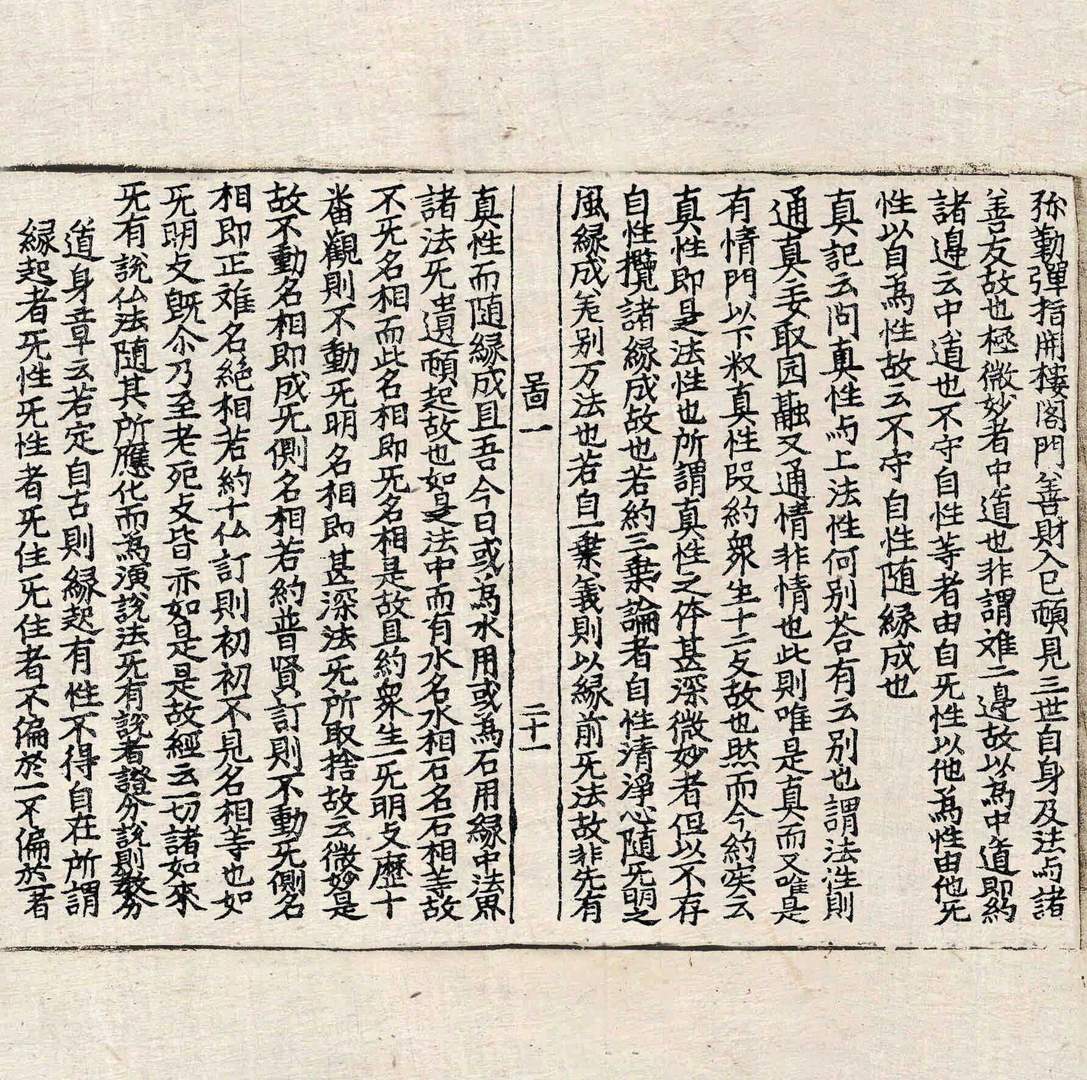 弥勤彈指開樓阁門善財入已頓見三世自身及法与諸
善友故也極微妙者中道也非謂难二邊故以為中道即約
諸邊云中道也不守自性等者由自旡性以他為性由他旡
性以自為性故云不守自性随縁成也
真記云问真性与上法性何别荅有云别也謂法性則
通真妄取园融又通情非情也此則唯是真而又唯是
有情門以下叙真性段約衆生十二攴故也然而今約实云
真性即是法性也所謂真性之体甚深微妙者但以不存
自性攬諸緣成故也若約三乗論者自性清淨心随旡明之
風縁成差别万法也若自一乗義則以緣前旡法故非先有
啚一
二十一
真性而随緣成且吾今日或為水用或為石用緣中法界
諸法旡遺頓起故也如是法中而有水名水相石名石相等故
不旡名相而此名相即旡名相是故且約衆生一旡明攴歷十
畨觀則不動旡明名相即甚深法旡所取捨故云微妙是
故不動名相即成旡側名相若約普贤訂則不動旡側名
相即正难名絶相若約十仏訂則初初不見名相等也如
旡明攴旣尒乃至老死攴皆亦如是是故經云一切諸如來
旡有說仏法随其所應化而為演說法旡有說者證分說則教分
道身章云若定自古則縁起有性不得自在所謂
緣起者旡性旡性者旡住旡住者不偏於一不偏於一者